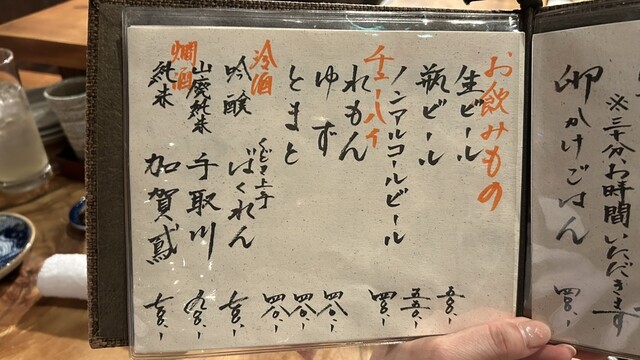 ※三十分お時間いただきます
卵かけごはん 四〇〇.-
お飲みもの
生ビール 五〇〇.-
瓶ビール 五五〇.-
ノンアルコールビール 四〇〇.-
チューハイ
れもん 四〇〇.-
ゆず 四〇〇.-
とまと 四〇〇.-
冷酒
吟醸 くどき上手 ばくれん 七〇〇.-
山廃純米 手取川 九〇〇.-
燗酒
純米 加賀鳶 七〇〇.-